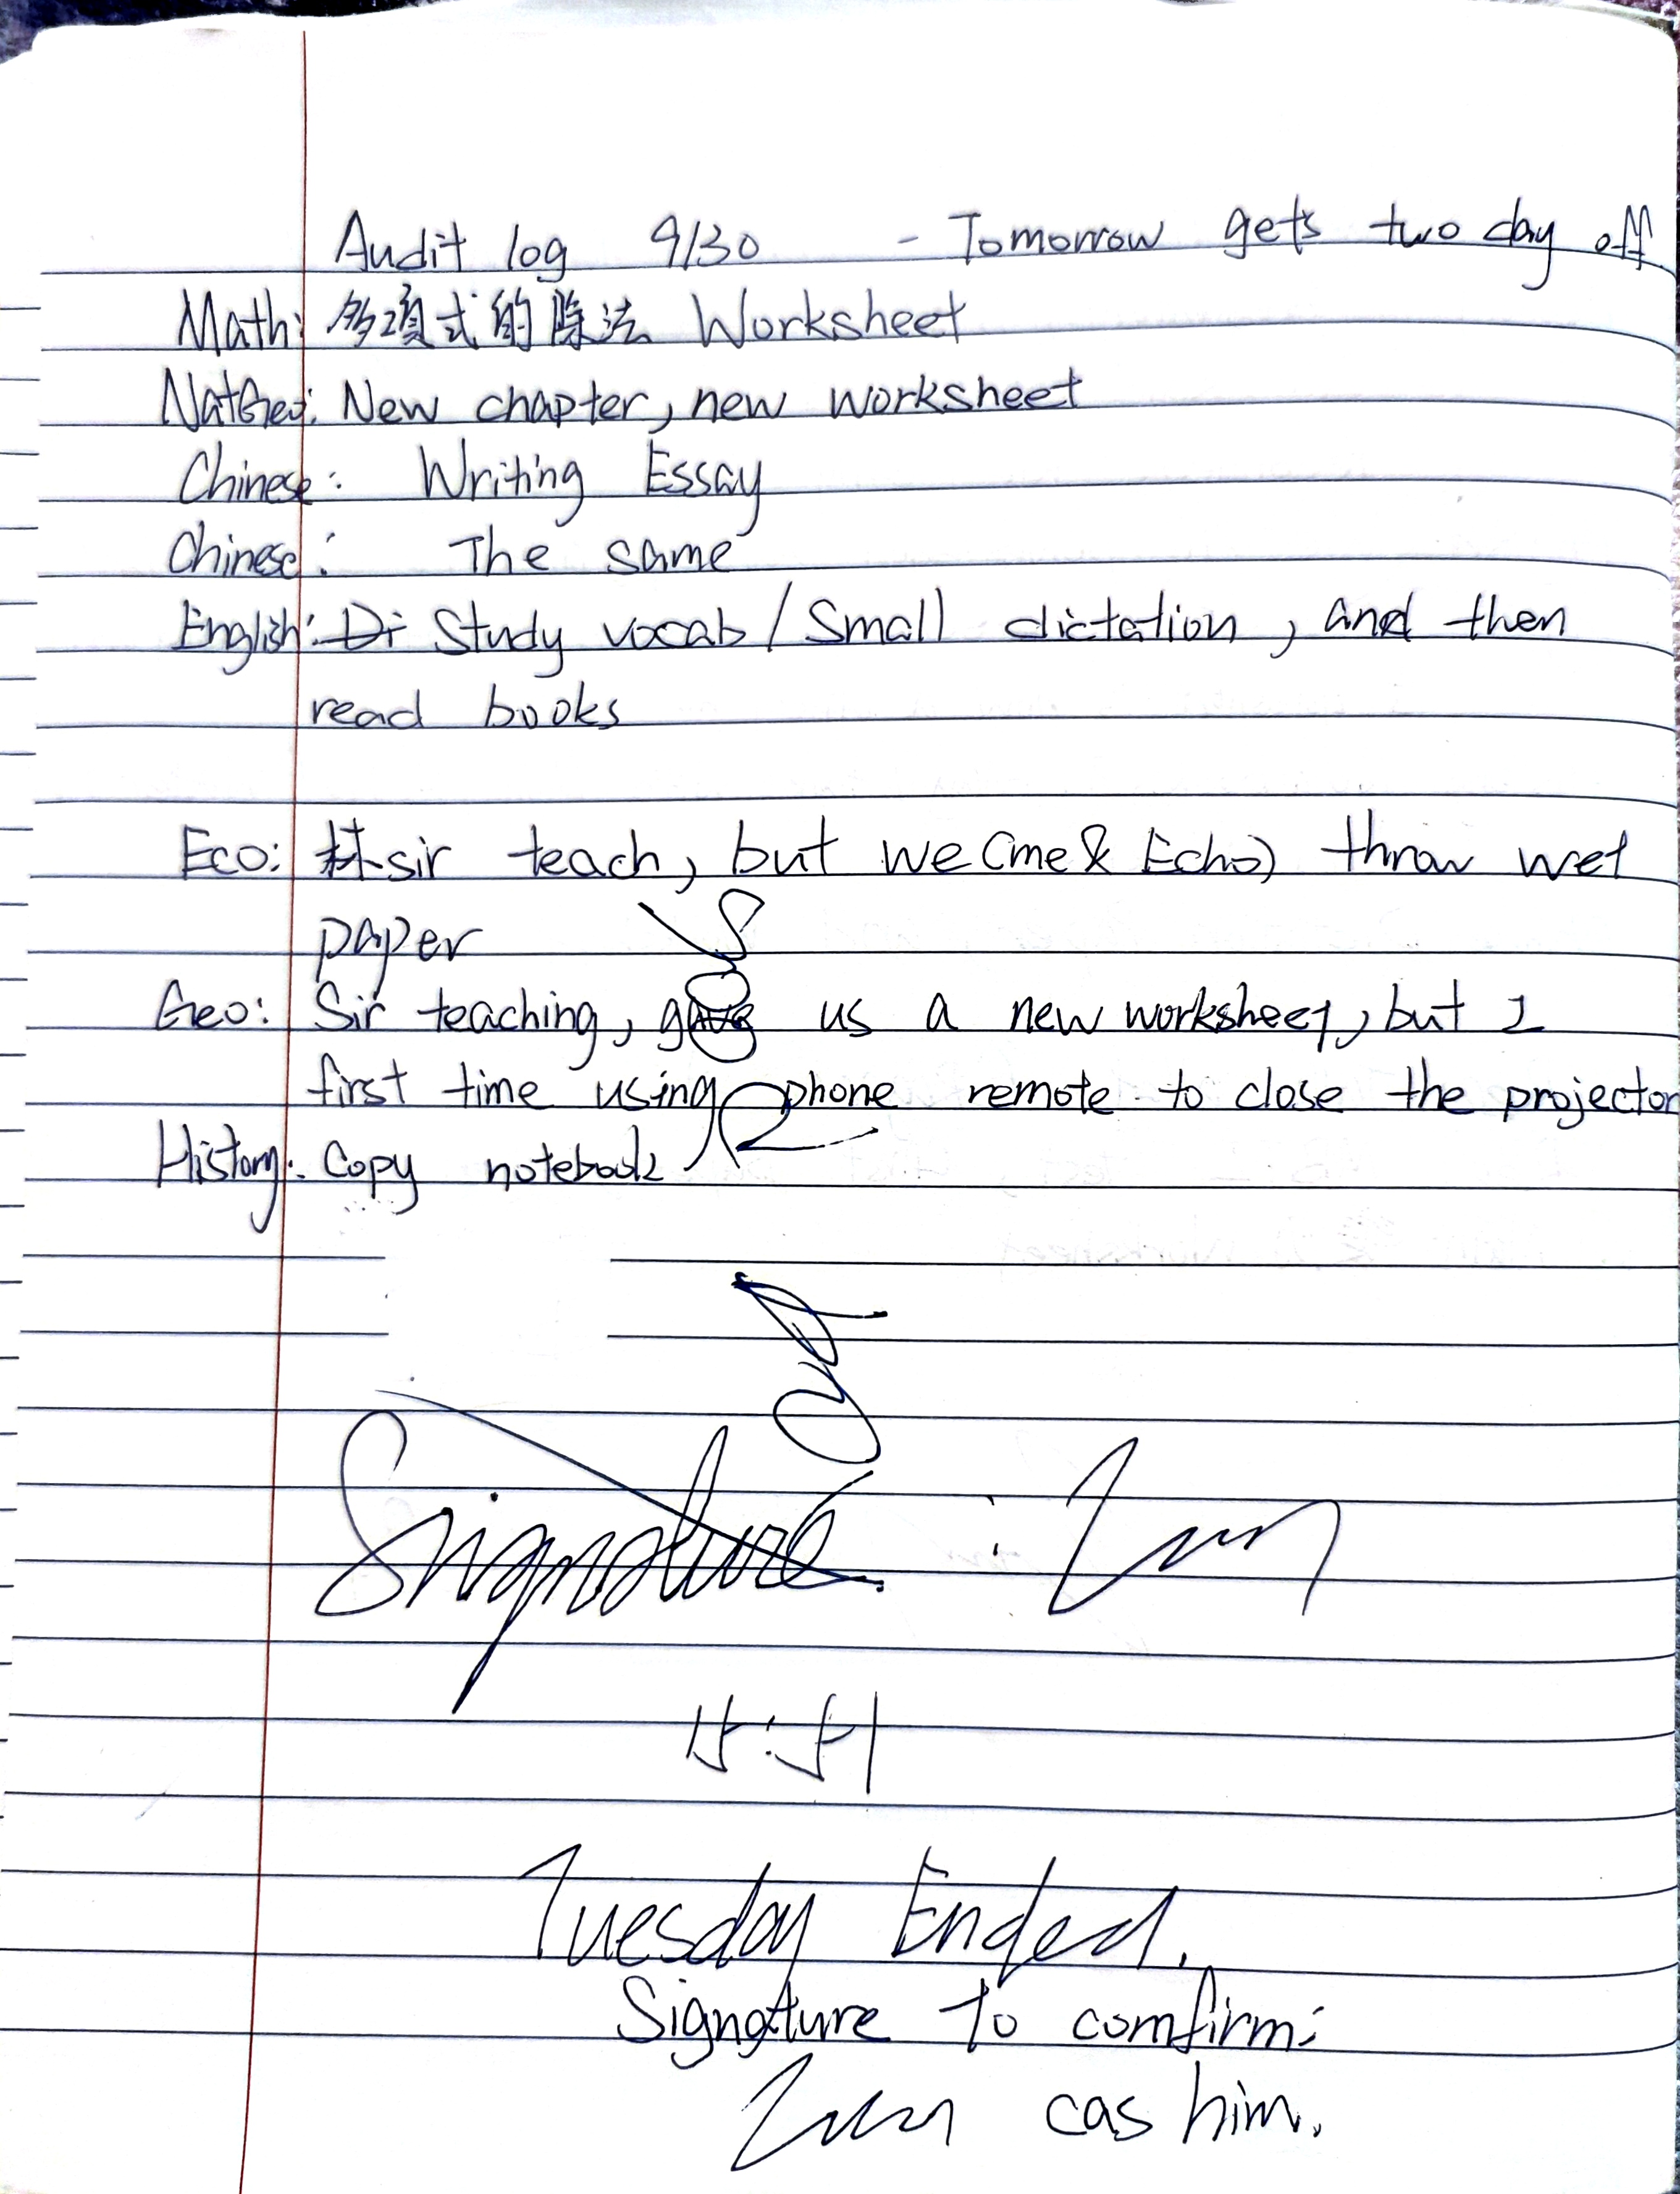 Audit log 9/30 - Tomorrow gets two day off
Math: 多項式的除法 Worksheet
NatGeo: New chapter, new worksheet
Chinese: Writing Essay
Chinese: The same
English: Di Study vocab / Small dictation, and then
read books
Eco: 林sir teach, but we (me & Echo) throw wet
paper
Geo: Sir teaching, gave us a new worksheet, but I
first time using phone remote to close the projector
History: Copy notebook
Signature:
Tuesday Ended.
Signature to comfirm:
cas him.